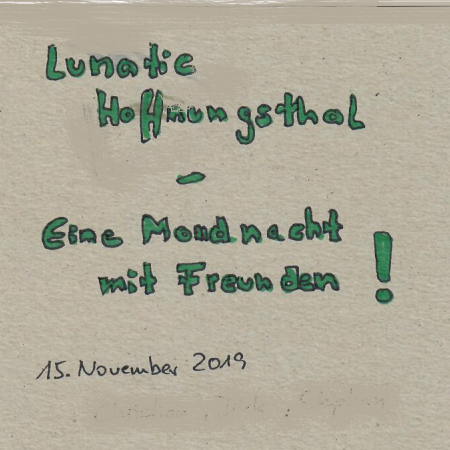 Lunatic
Hoffnungsthal
-
Eine Mondnacht
mit Freunden !
15. November 2019